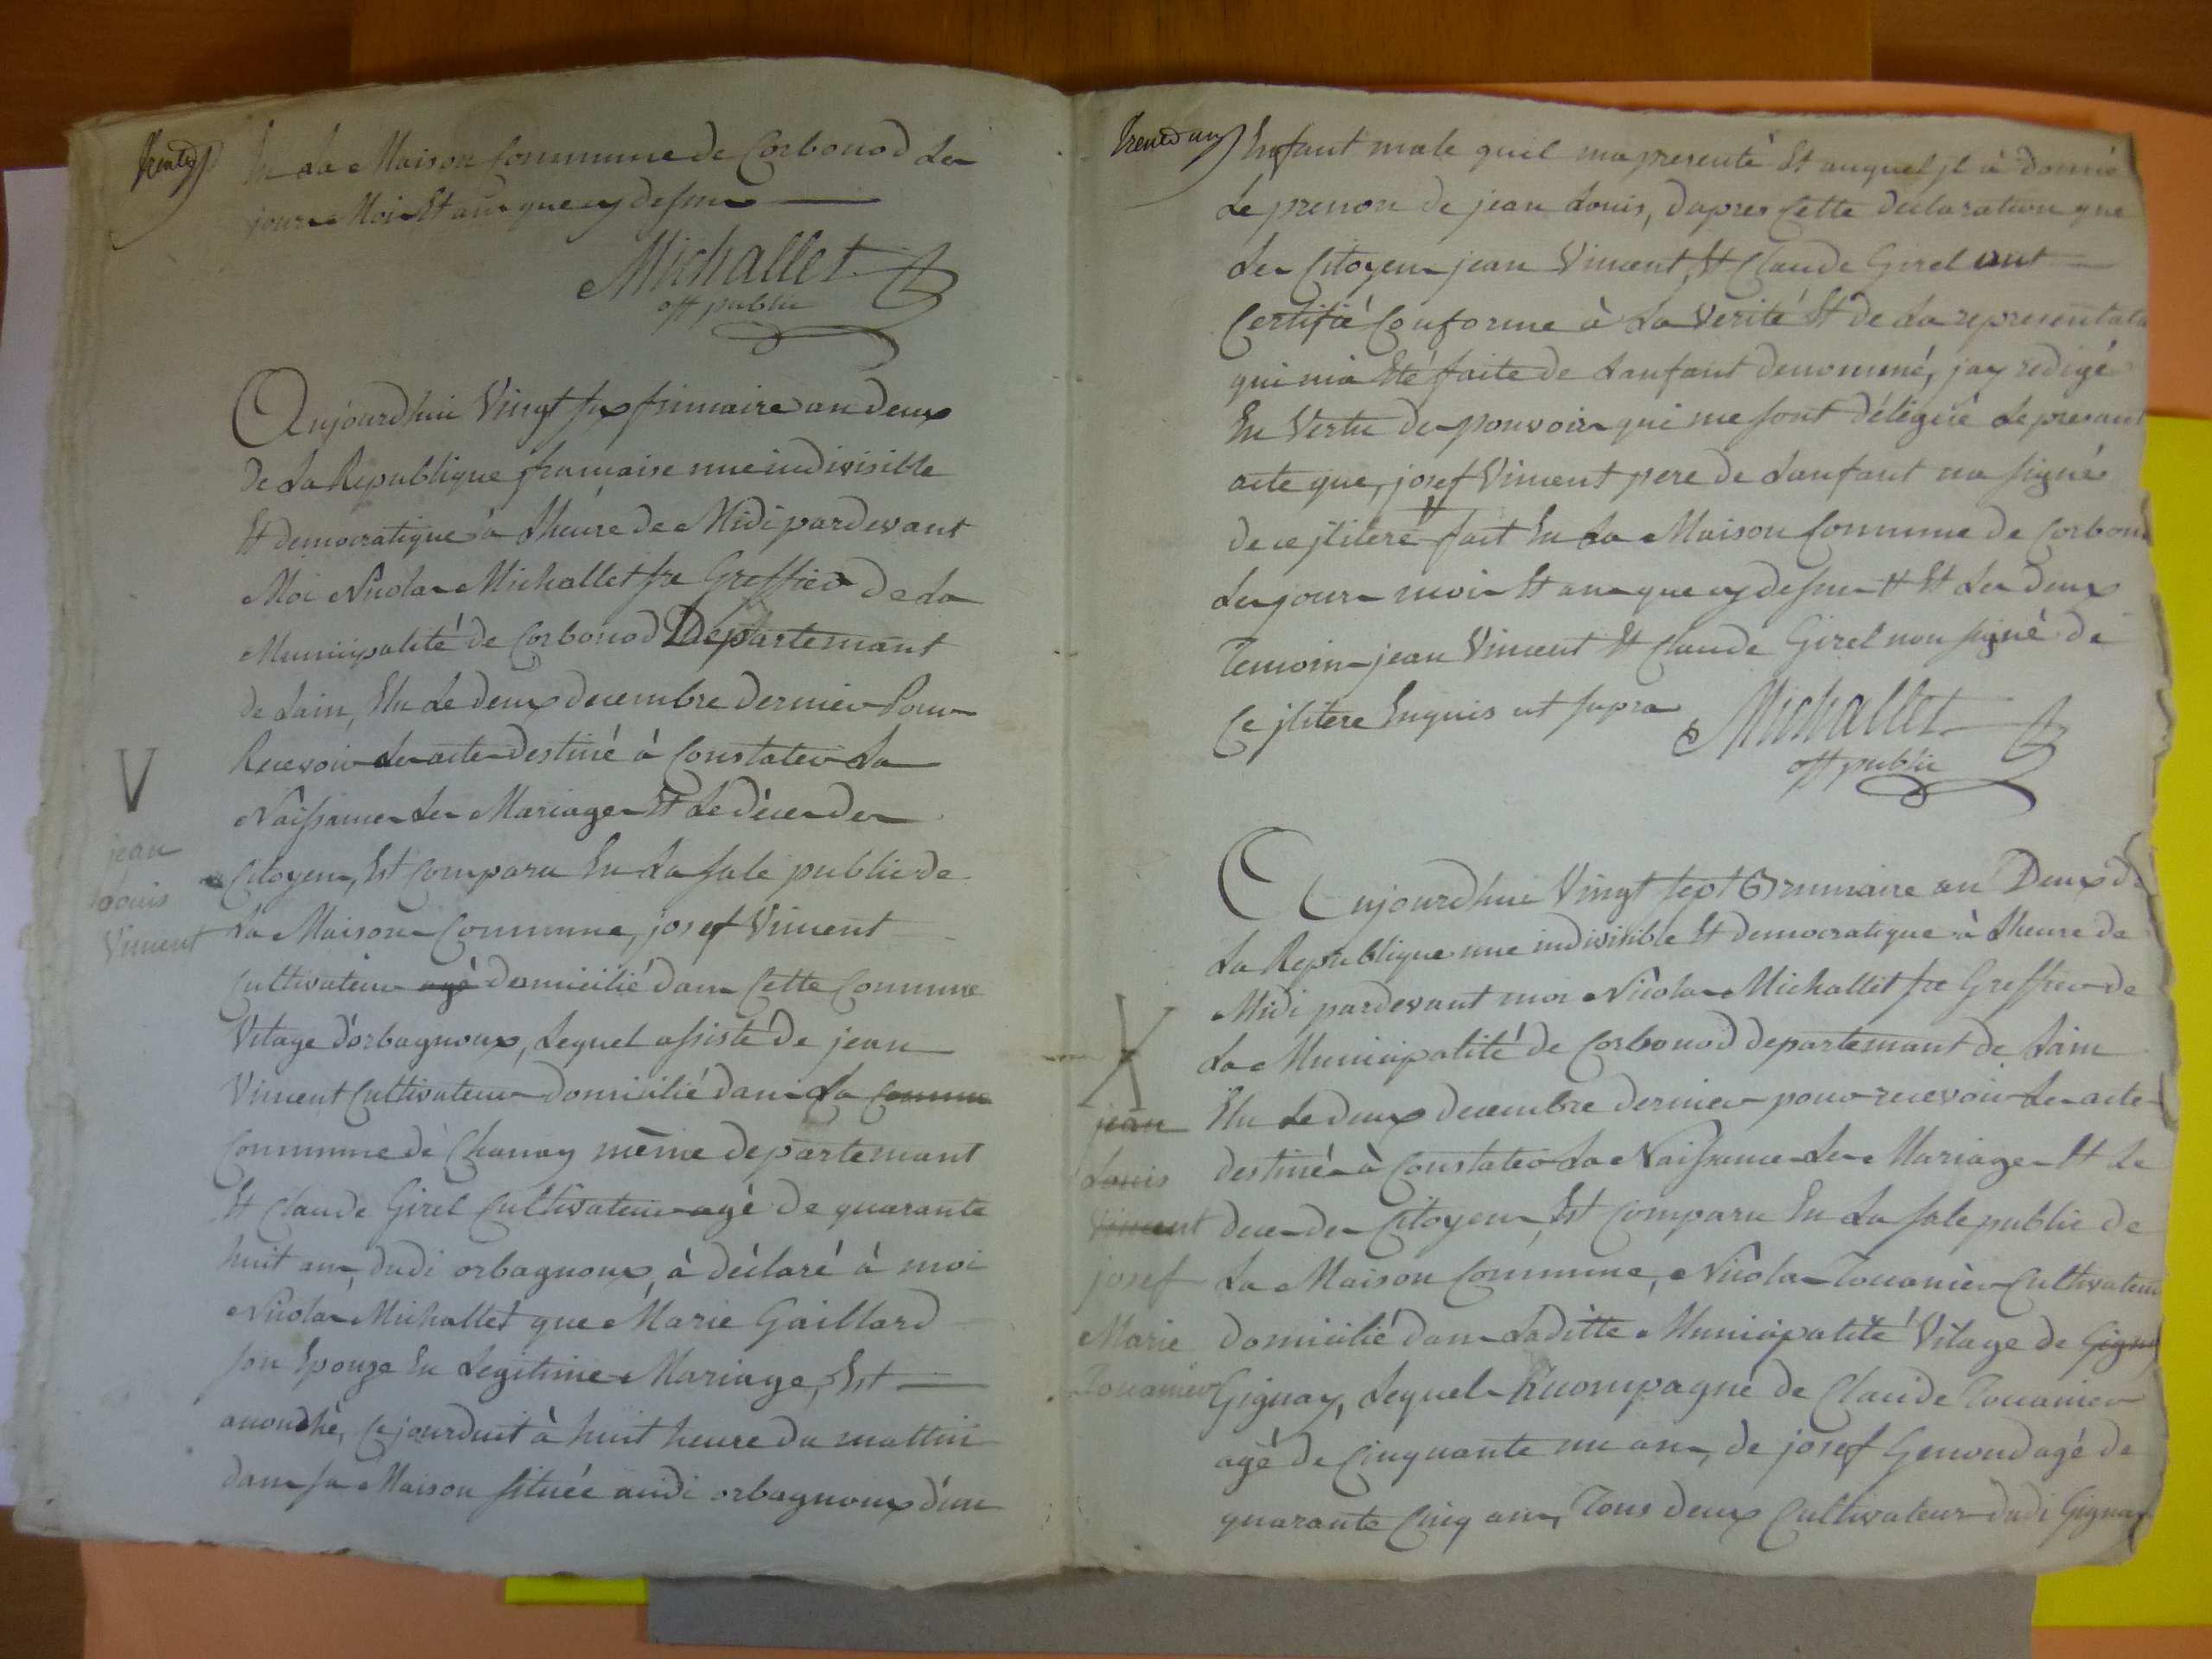 trente
En La Maison Commune de Corbonod Les
jours Mois Et ans que cy dessus
Michallet
off public
Aujourdhui Vingt six frimaire an deux
de La Republique francaise une indivisible
Et democratique à Lheure de Midi pardevant
Moi Nicolas Michallet sre Greffier de La
Municipalité de Corbonod Departemant
de Lain, Elu Le deux decembre dernier Pour
Recevoir Les actes destiné à Constater La
Naissance Les Mariages Et Le décès des
Citoyens, Est Comparu En La sale public de
La Maison Commune, josef Vincent
Cultivateur agé domicilié dans Cette Commune
Vilage d'orbagnoux, Lequel assisté de jean
Vincent Cultivateur domicilié dans La Commun
Commune de Chanay même departemant
Et Claude Girel Cultivateur agé de quarante
huit ans, dudi orbagnoux, à déclaré à moi
Nicolas Michallet que Marie Gaillard
son Epouze En Legitime Mariage, Est
acouchée, Cejourduit à huit heure du mattin
dans sa Maison située audi orbagnoux d'un
V
jean
Louis
Vincent
trente un
Enfant male quil ma presenté Et auquel jl à donné
Le prenon de jean Louis, dapres Cette declaration que
Les Citoyens jean Vincent Et Claude Girel ont
Certifié Conforme à La Verité Et de La representa
qui ma Eté faite de Lanfant denommé, jay redigé
En Vertu des pouvoirs qui me sont délégué Le presant
acte que, josef Vincent pere de Lanfant na signé
de ce jlitere fait En La Maison Commune de Corbon
Les jours mois Et ans que cy dessus # Et Les deux
Temoins jean Vincent Et Claude Girel non signé de
Ce jlitere Enquis ut supra
Michallet
off public
Aujourdhui Vingt sept Brumaire an Deux de
La Republique une indivisible Et democratique à Lheure de
Midi pardevant moi Nicolas Michallet sre Greffier de
La Municipalité de Corbonod departemant de Lain
Elu Le deux decembre dernier pour recevoir Les actes
destiné à Constater La Naissance Les Mariages Et Le
deces des Citoyens, Est Comparu En La sale public de
La Maison Commune, Nicolas Touanier Cultivateur
domicilié dans Laditte Municipalité Vilage de Gigna
Gignay, Lequel Accompagné de Claude Touanier
agé de Cinquante un ans, de josef Genoud agé de
quarante Cinq ans, Tous deux Cultivateur dudi Gignay
X
jean
Louis
Vincent
josef
Marie
Touanier